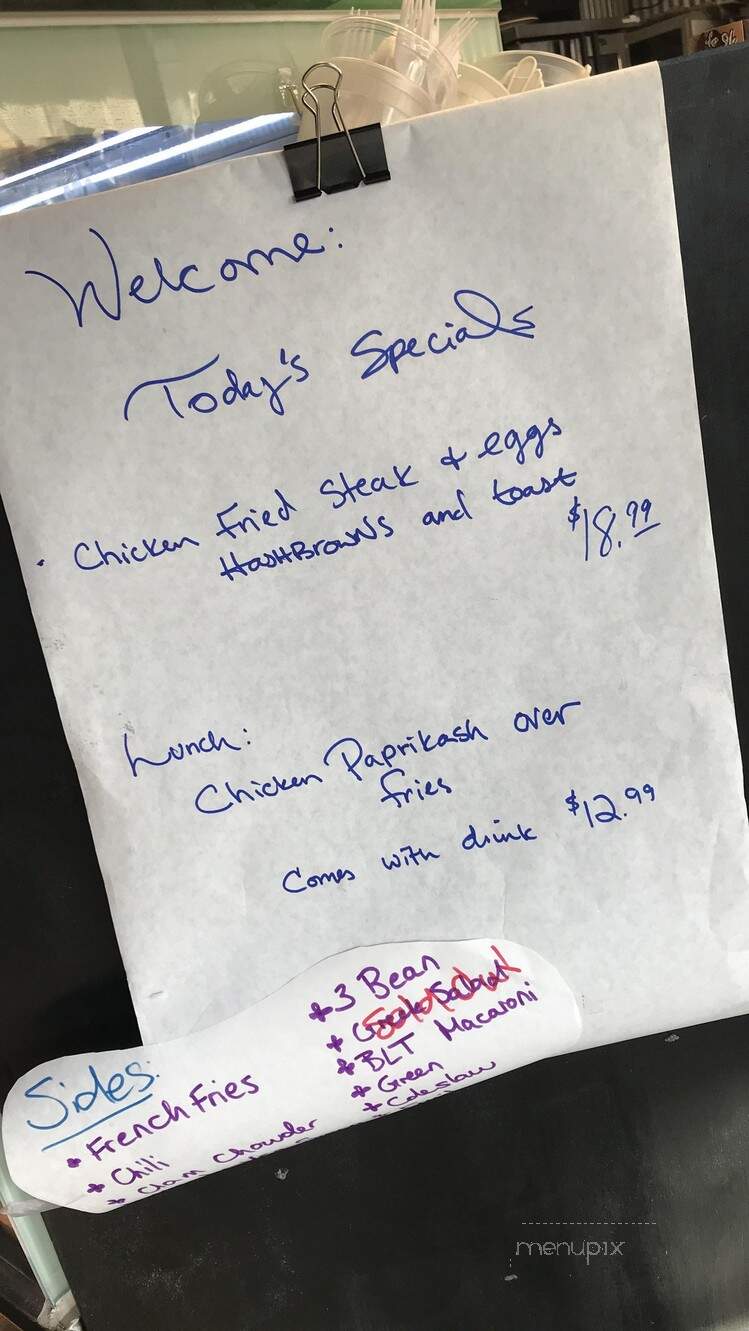 Welcome:
Today's Specials
• Chicken Fried Steak & eggs
HashBrowns and toast
$18.99
Lunch:
Chicken Paprikash over
fries
Comes with drink $12.99
Sides:
* French Fries
* Chili
* Clam Chowder
* 3 Bean
* Greek Salad
Sold Out
* BLT Macaroni
* Green
* Coleslaw
menupix